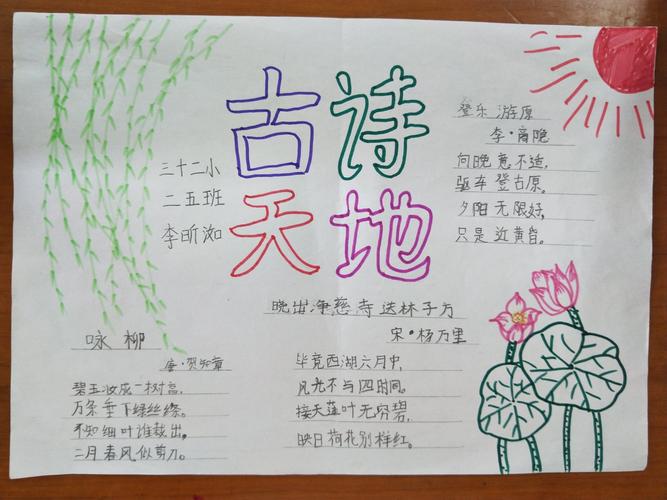 古诗
天地
三十二小
二五班
李昕洳
登乐游原
李·商隐
向晚意不适,
驱车登古原。
夕阳无限好,
只是近黄昏。
咏柳
唐·贺知章
碧玉妆成一树高,
万条垂下绿丝绦。
不知细叶谁裁出,
二月春风似剪刀。
晓出净慈寺送林子方
宋·杨万里
毕竟西湖六月中,
风光不与四时同。
接天莲叶无穷碧,
映日荷花别样红。